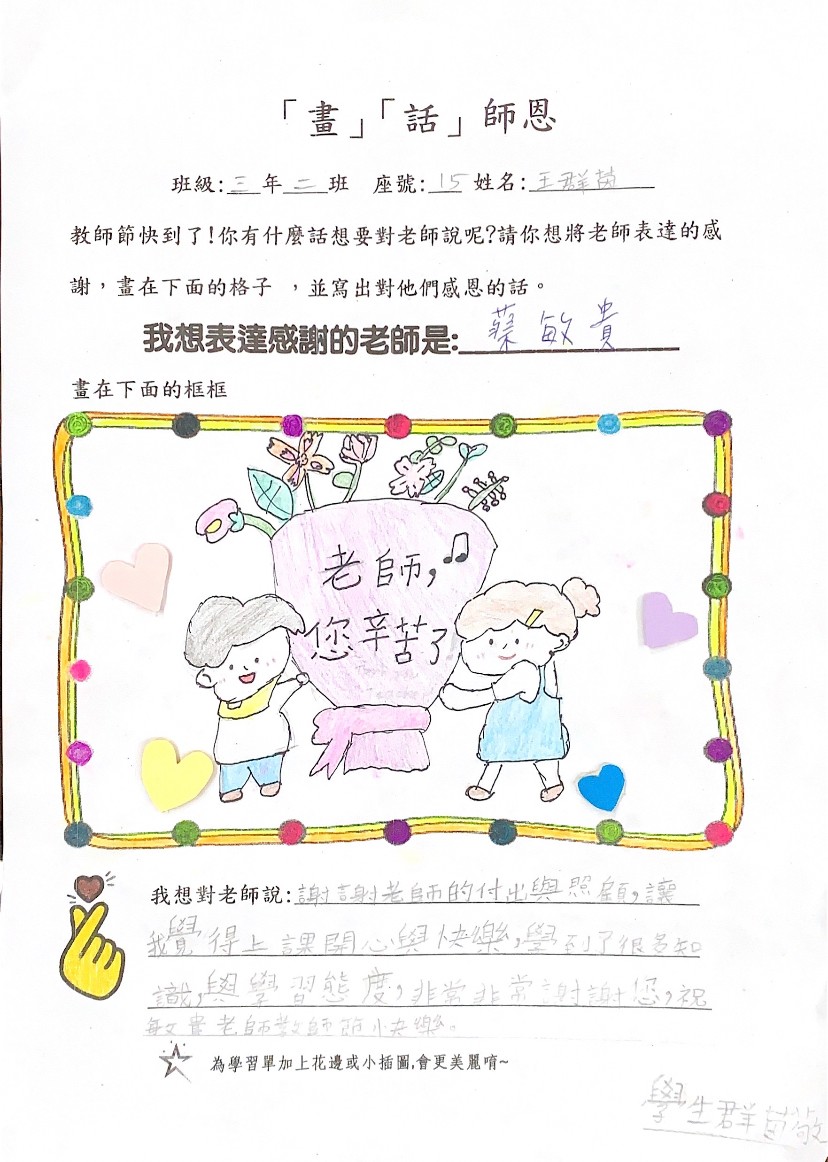 「畫」「話」師恩
班級:三年二班 座號:15 姓名:王群茵
教師節快到了!你有什麼話想要對老師說呢?請你想將老師表達的感
謝，畫在下面的格子 ，並寫出對他們感恩的話。
我想表達感謝的老師是:蔡敏貴
畫在下面的框框
老師,
您辛苦了
我想對老師說:謝謝老師的付出與照顧,讓
我覺得上課開心與快樂,學到了很多知
識,與學習態度,非常非常謝謝您,祝
敏貴老師教師節快樂。
為學習單加上花邊或小插圖,會更美麗唷~
學生群茵敬